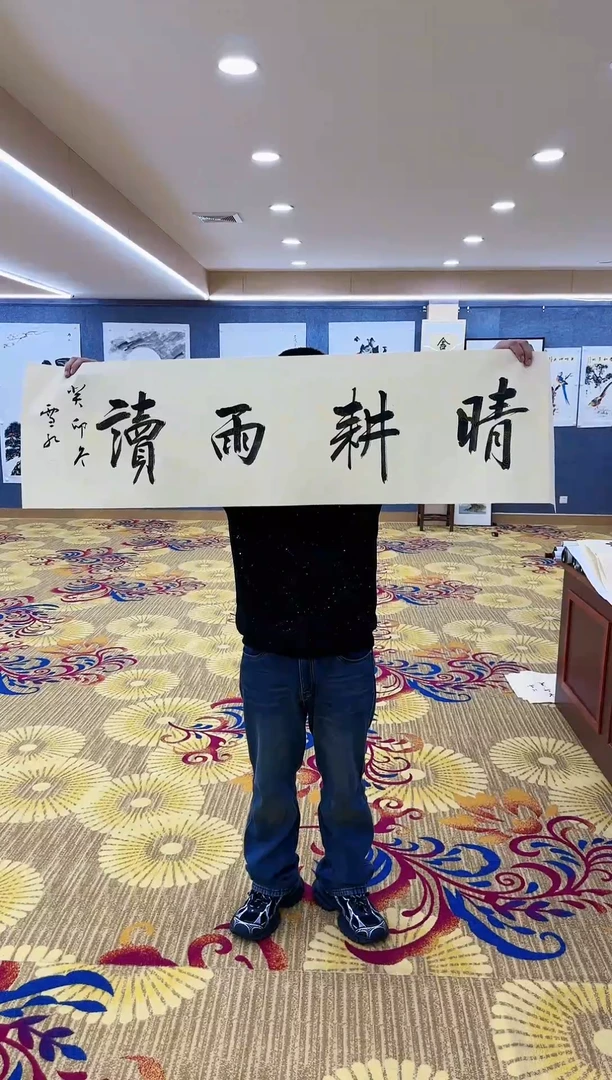 晴耕雨讀
癸卯冬
雪松